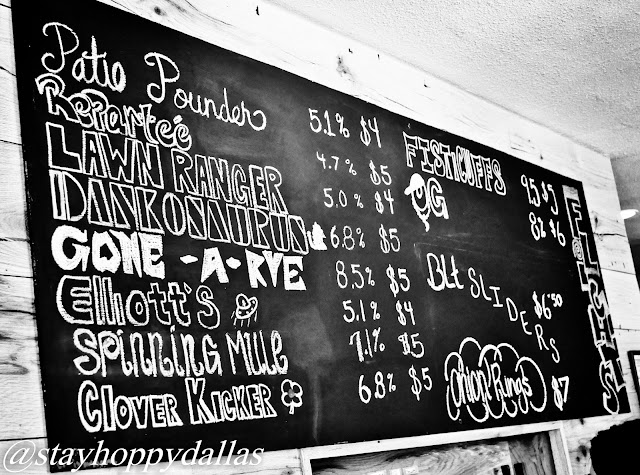 Patio Pounder 5.1% $4
RePartée 4.7% $5
LAWN RANGER 5.0% $4
DANKOSAURUS 6.8% $5
GONE-A-RYE 8.5% $5
Elliott's 5.1% $4
SPINNING MULE 7.1% $5
CLOVER KICKER 6.8% $5
FISTICUFFS 9.5 $5
OG 8% $6
BLt SLIDERS $6.50
Onion Rings $7
@stayhoppydallas